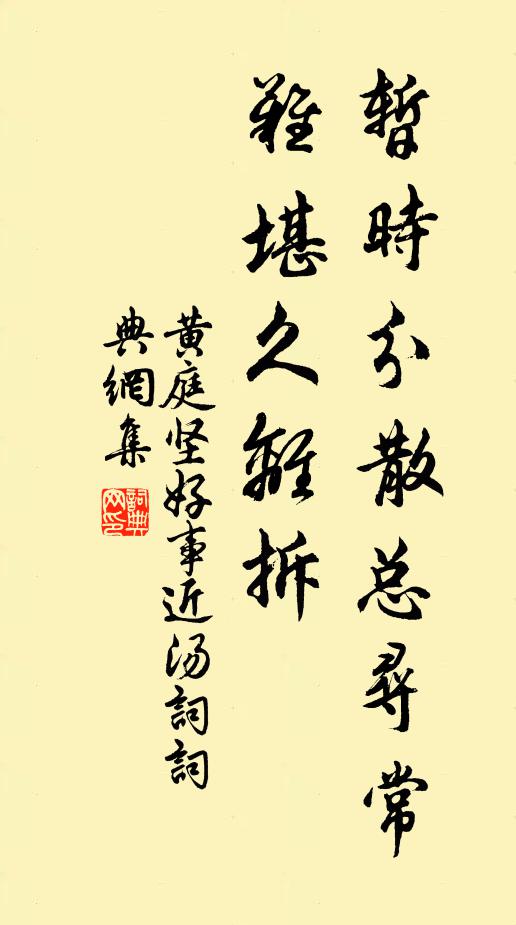 暫時分散总尋常
難堪久離拆
黄庭坚好事近汤詞詞
典網集
詞典
网印